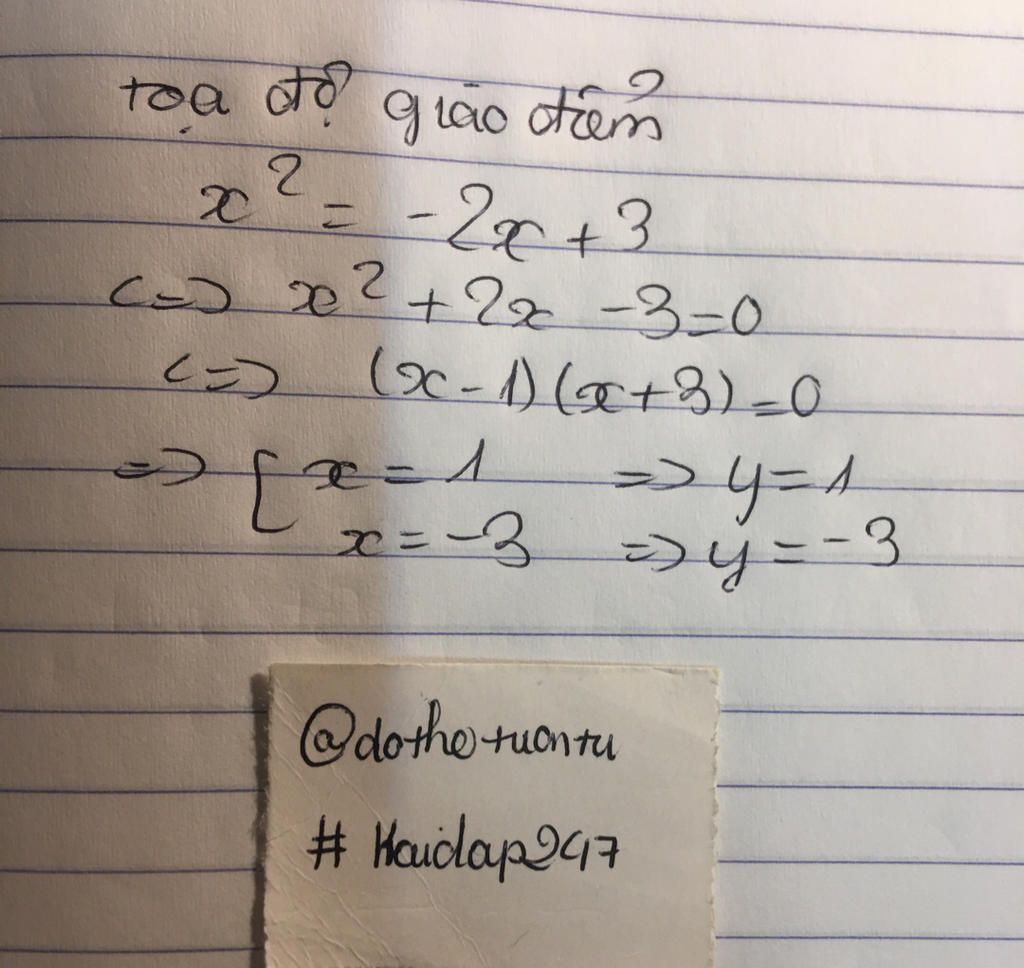 tọa độ giao điểm
x² = -2x + 3
<=> x² + 2x - 3 = 0
<=> (x - 1)(x + 3) = 0
=> [ x = 1 => y = 1
x = -3 => y = -3
@dothetuantu
# Hoidap247